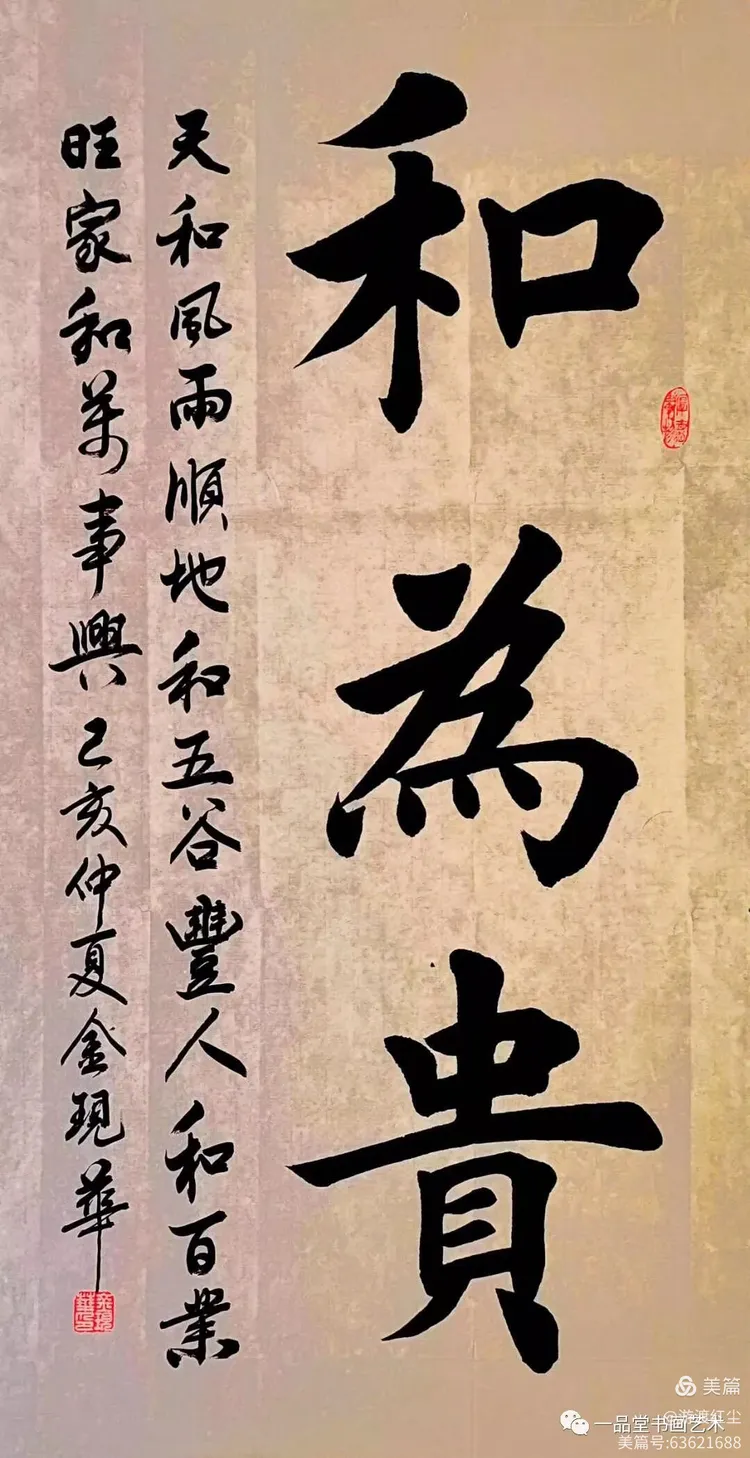 和為貴
天和風雨順地和五谷豐人和百業
旺家和萬事興己亥仲夏金現華
美篇
@游渡红尘
一品堂书画艺术
美篇号:63621688